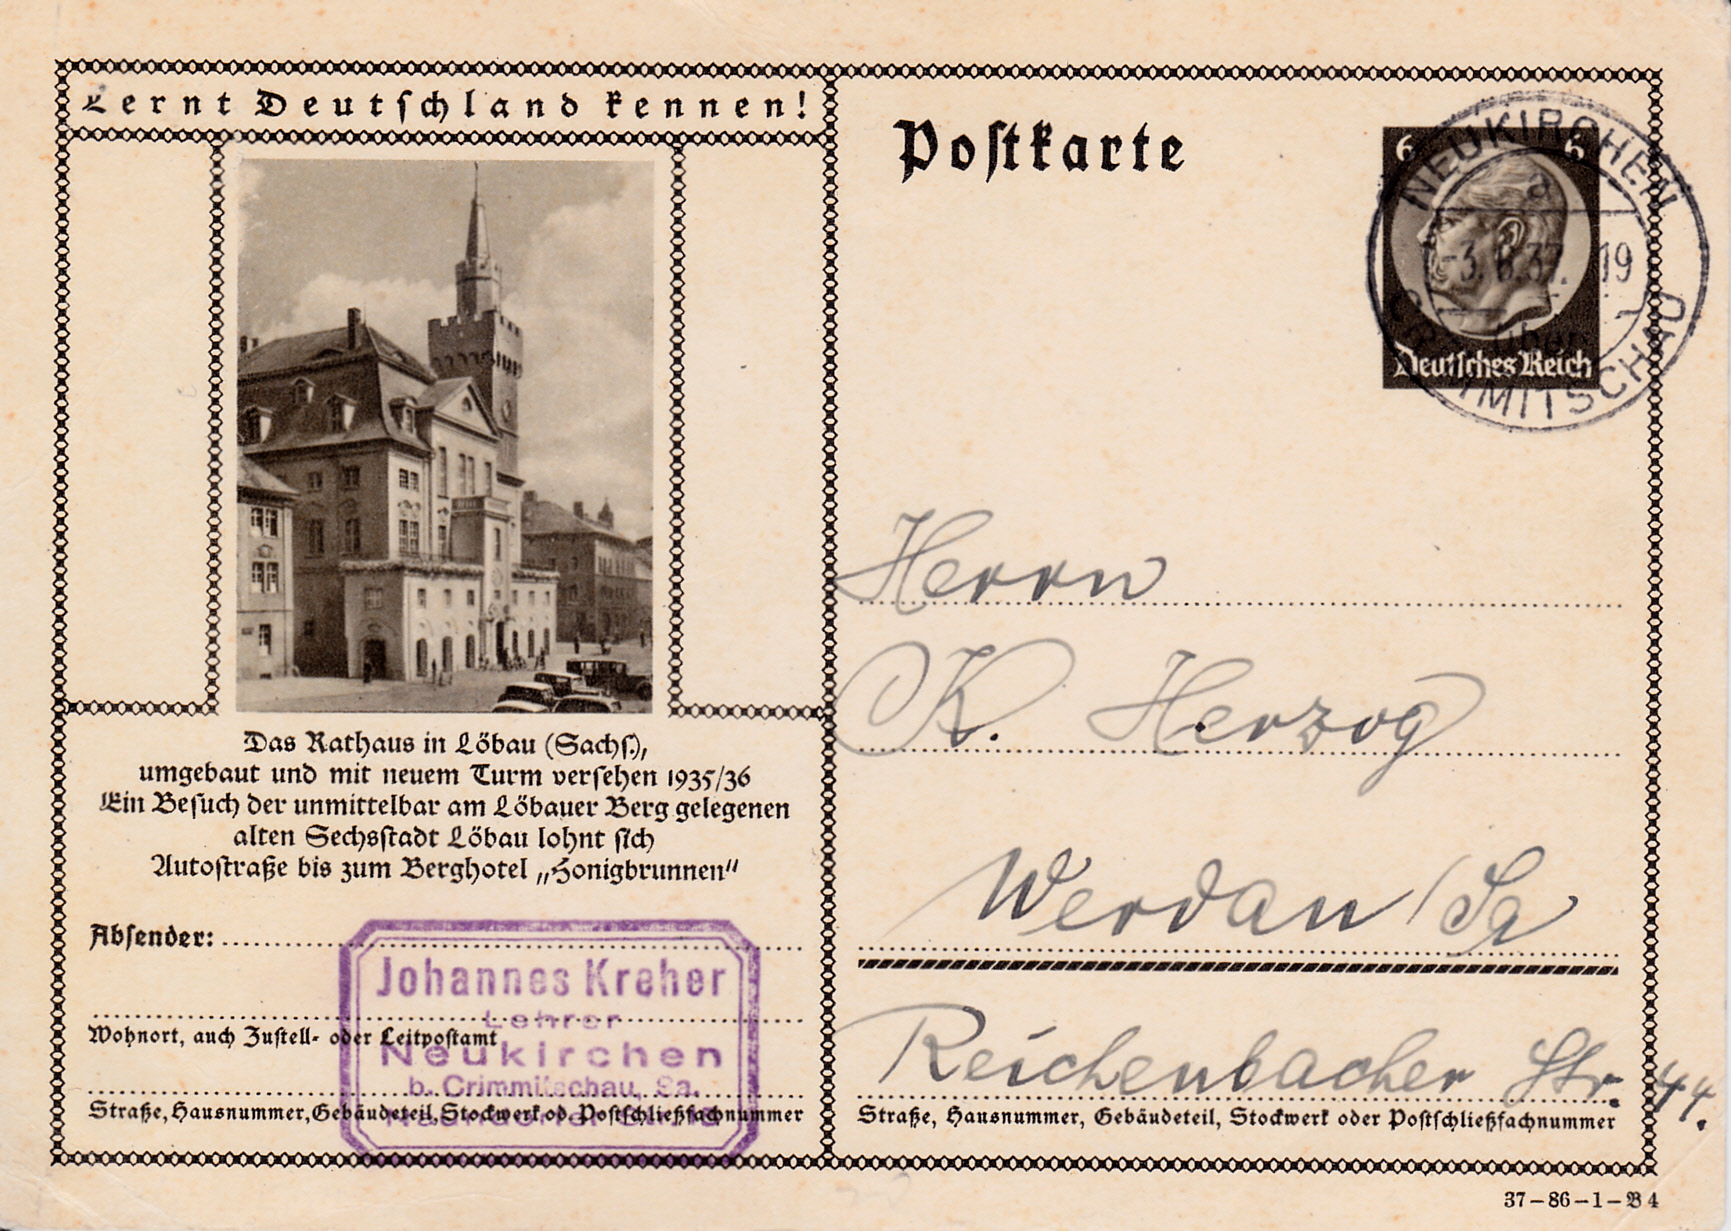 Lernt Deutschland kennen!
Das Rathaus in Löbau (Sachs.),
umgebaut und mit neuem Turm versehen 1935/36
Ein Besuch der unmittelbar am Löbauer Berg gelegenen
alten Sechsstadt Löbau lohnt sich
Autostraße bis zum Berghotel „Honigbrunnen“
Absender:
Johannes Kreher
Lehrer
Neukirchen
b. Crimmitschau, Sa.
Wohnort, auch Zustell- oder Leitpostamt
Straße, Hausnummer, Gebäudeteil, Stockwerk od. Postschließfachnummer
Postkarte
6 6
Deutsches Reich
NEUKIRCHEN
a
-3. 37. 19
über
CRIMMITSCHAU
Herrn
K. Herzog
Werdau / Sa
Reichenbacher Str. 44.
Straße, Hausnummer, Gebäudeteil, Stockwerk oder Postschließfachnummer
37-86-1-B 4